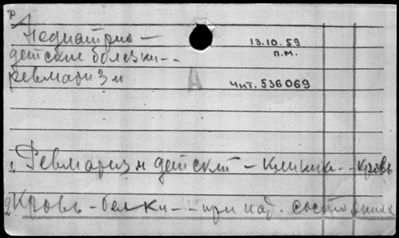 Р
Педиатрия –
13.10.59
детские болезни --
п.м.
ревматизм
А
Чит. 536069
1. Ревматизм детский – клиника -- кровь
2. Кровь – белки -- при пат. состояниях